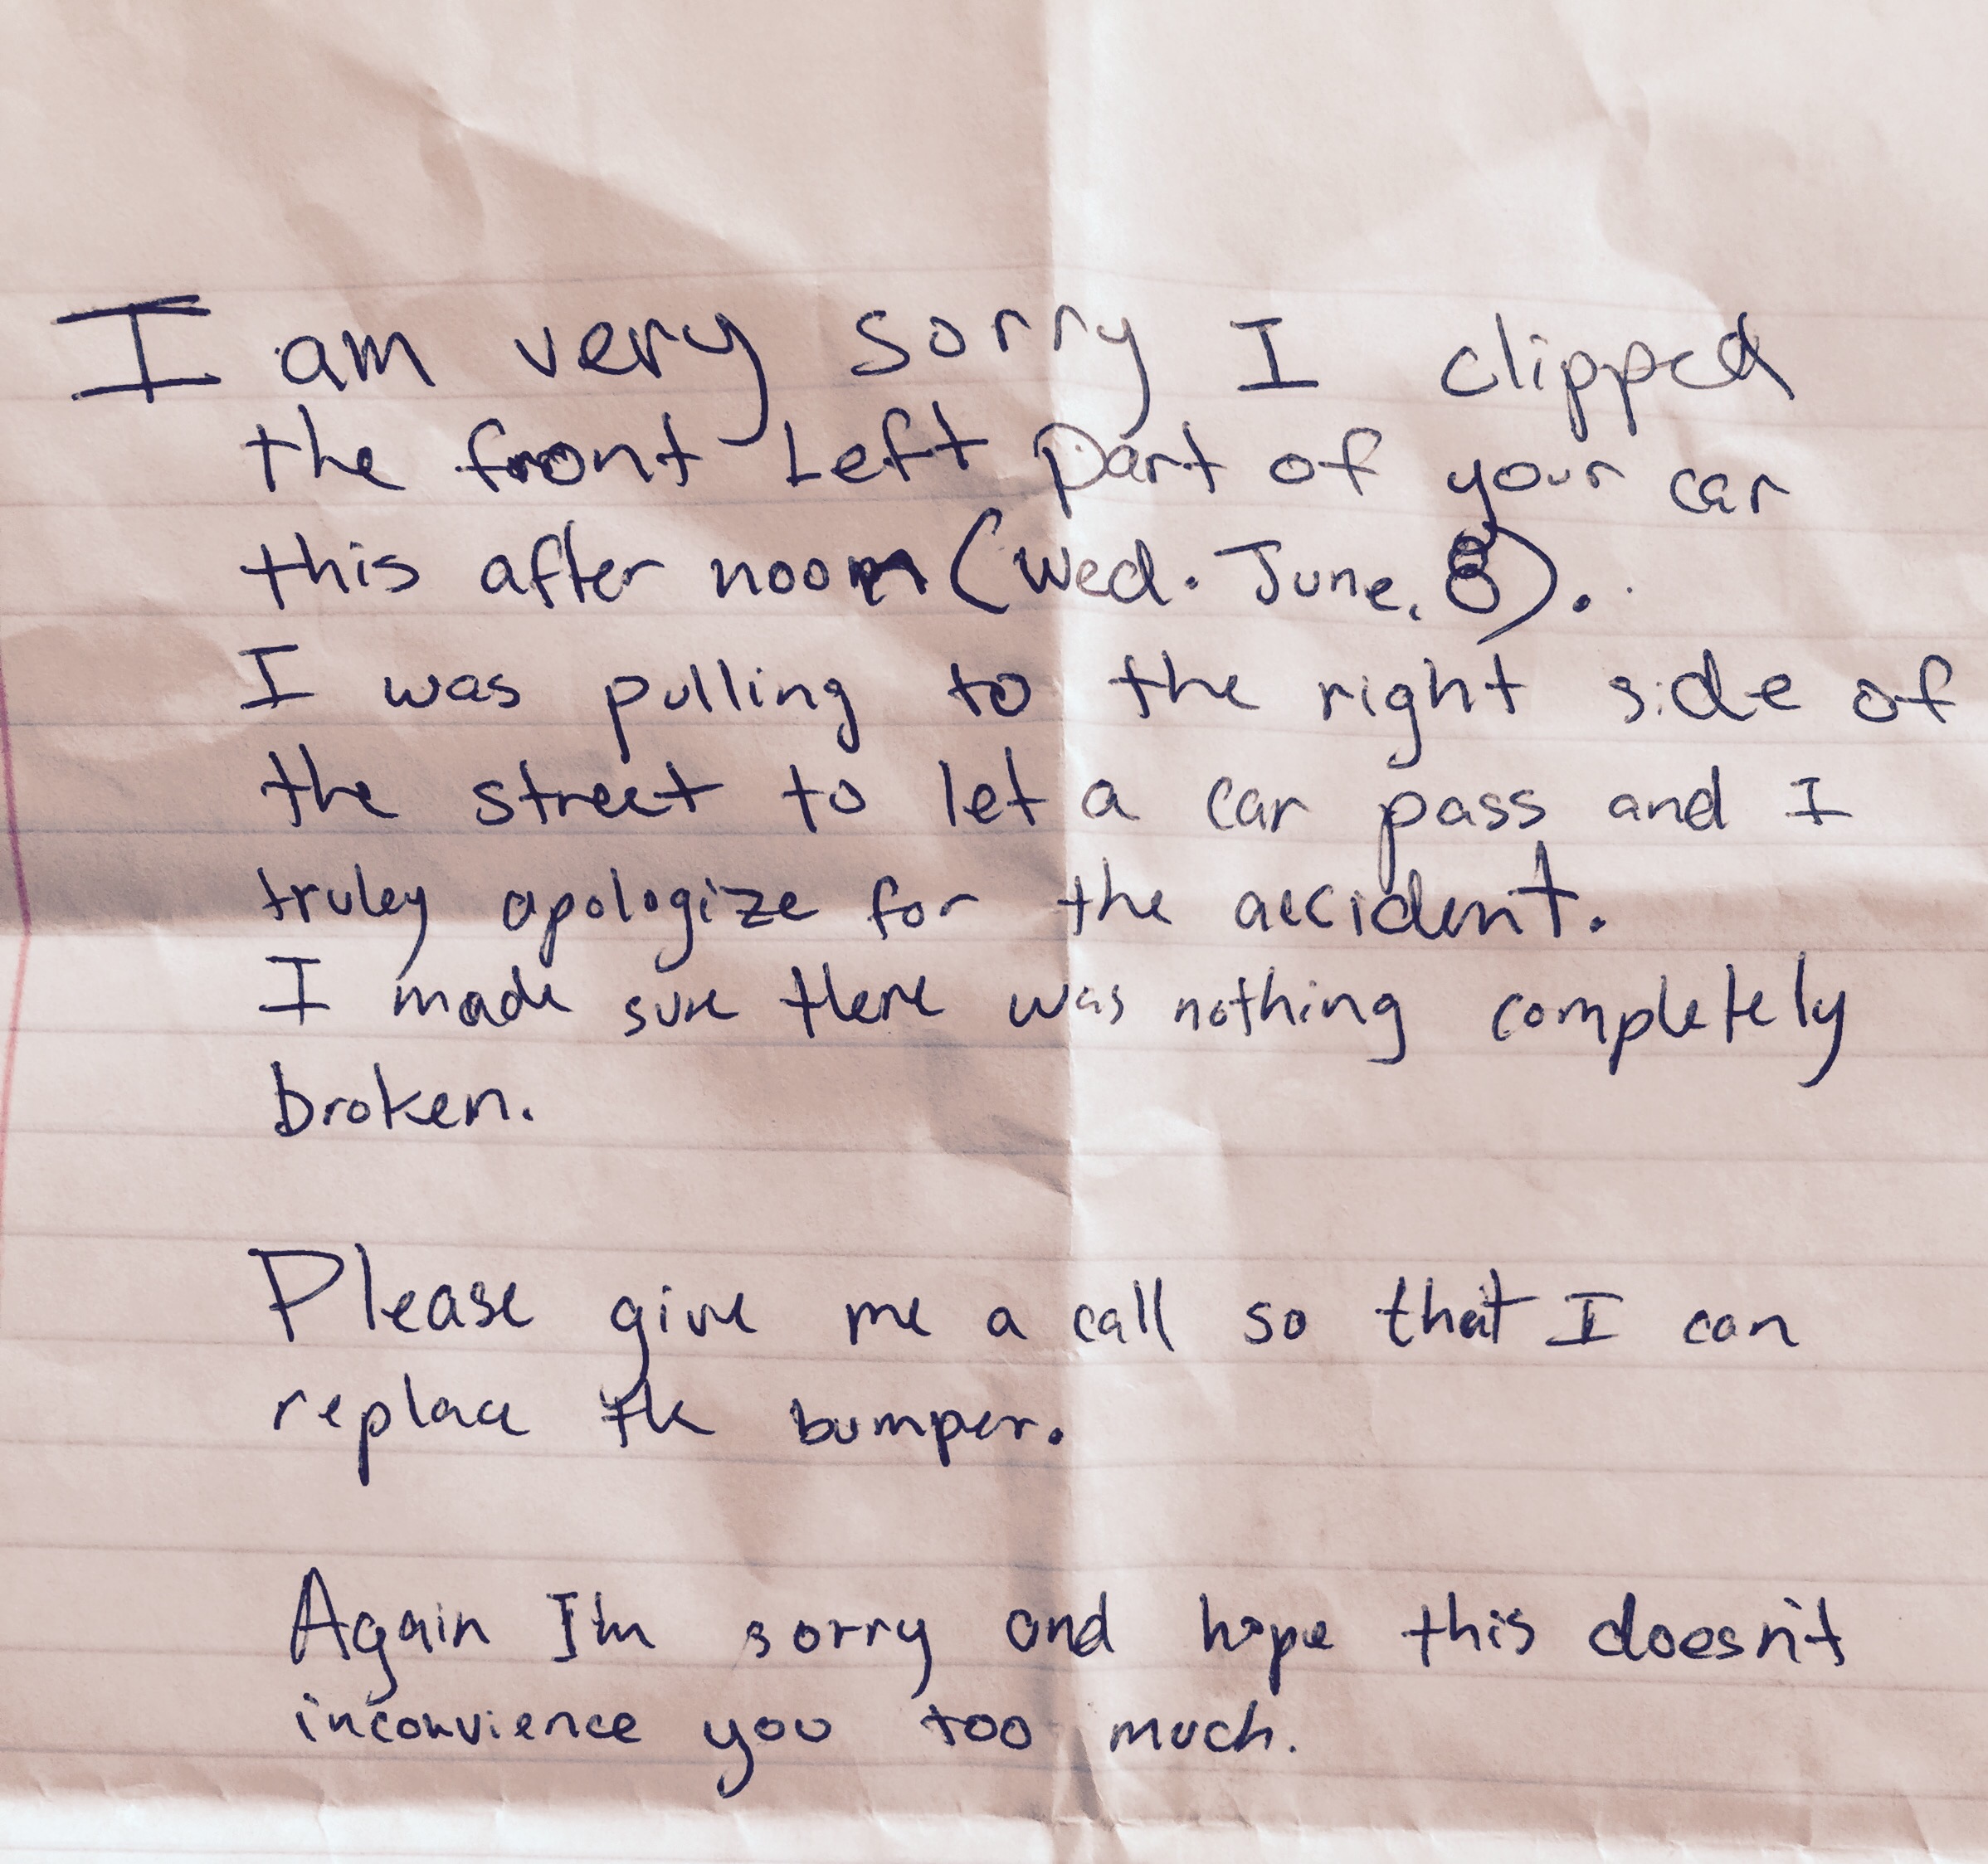 I am very sorry I clipped
the front Left part of your car
this after noon (Wed. June. 8).
I was pulling to the right side of
the street to let a car pass and I
truley apologize for the accident.
I made sure there was nothing completely
broken.
Please give me a call so that I can
replace the bumper.
Again I'm sorry and hope this doesn't
inconvience you too much.